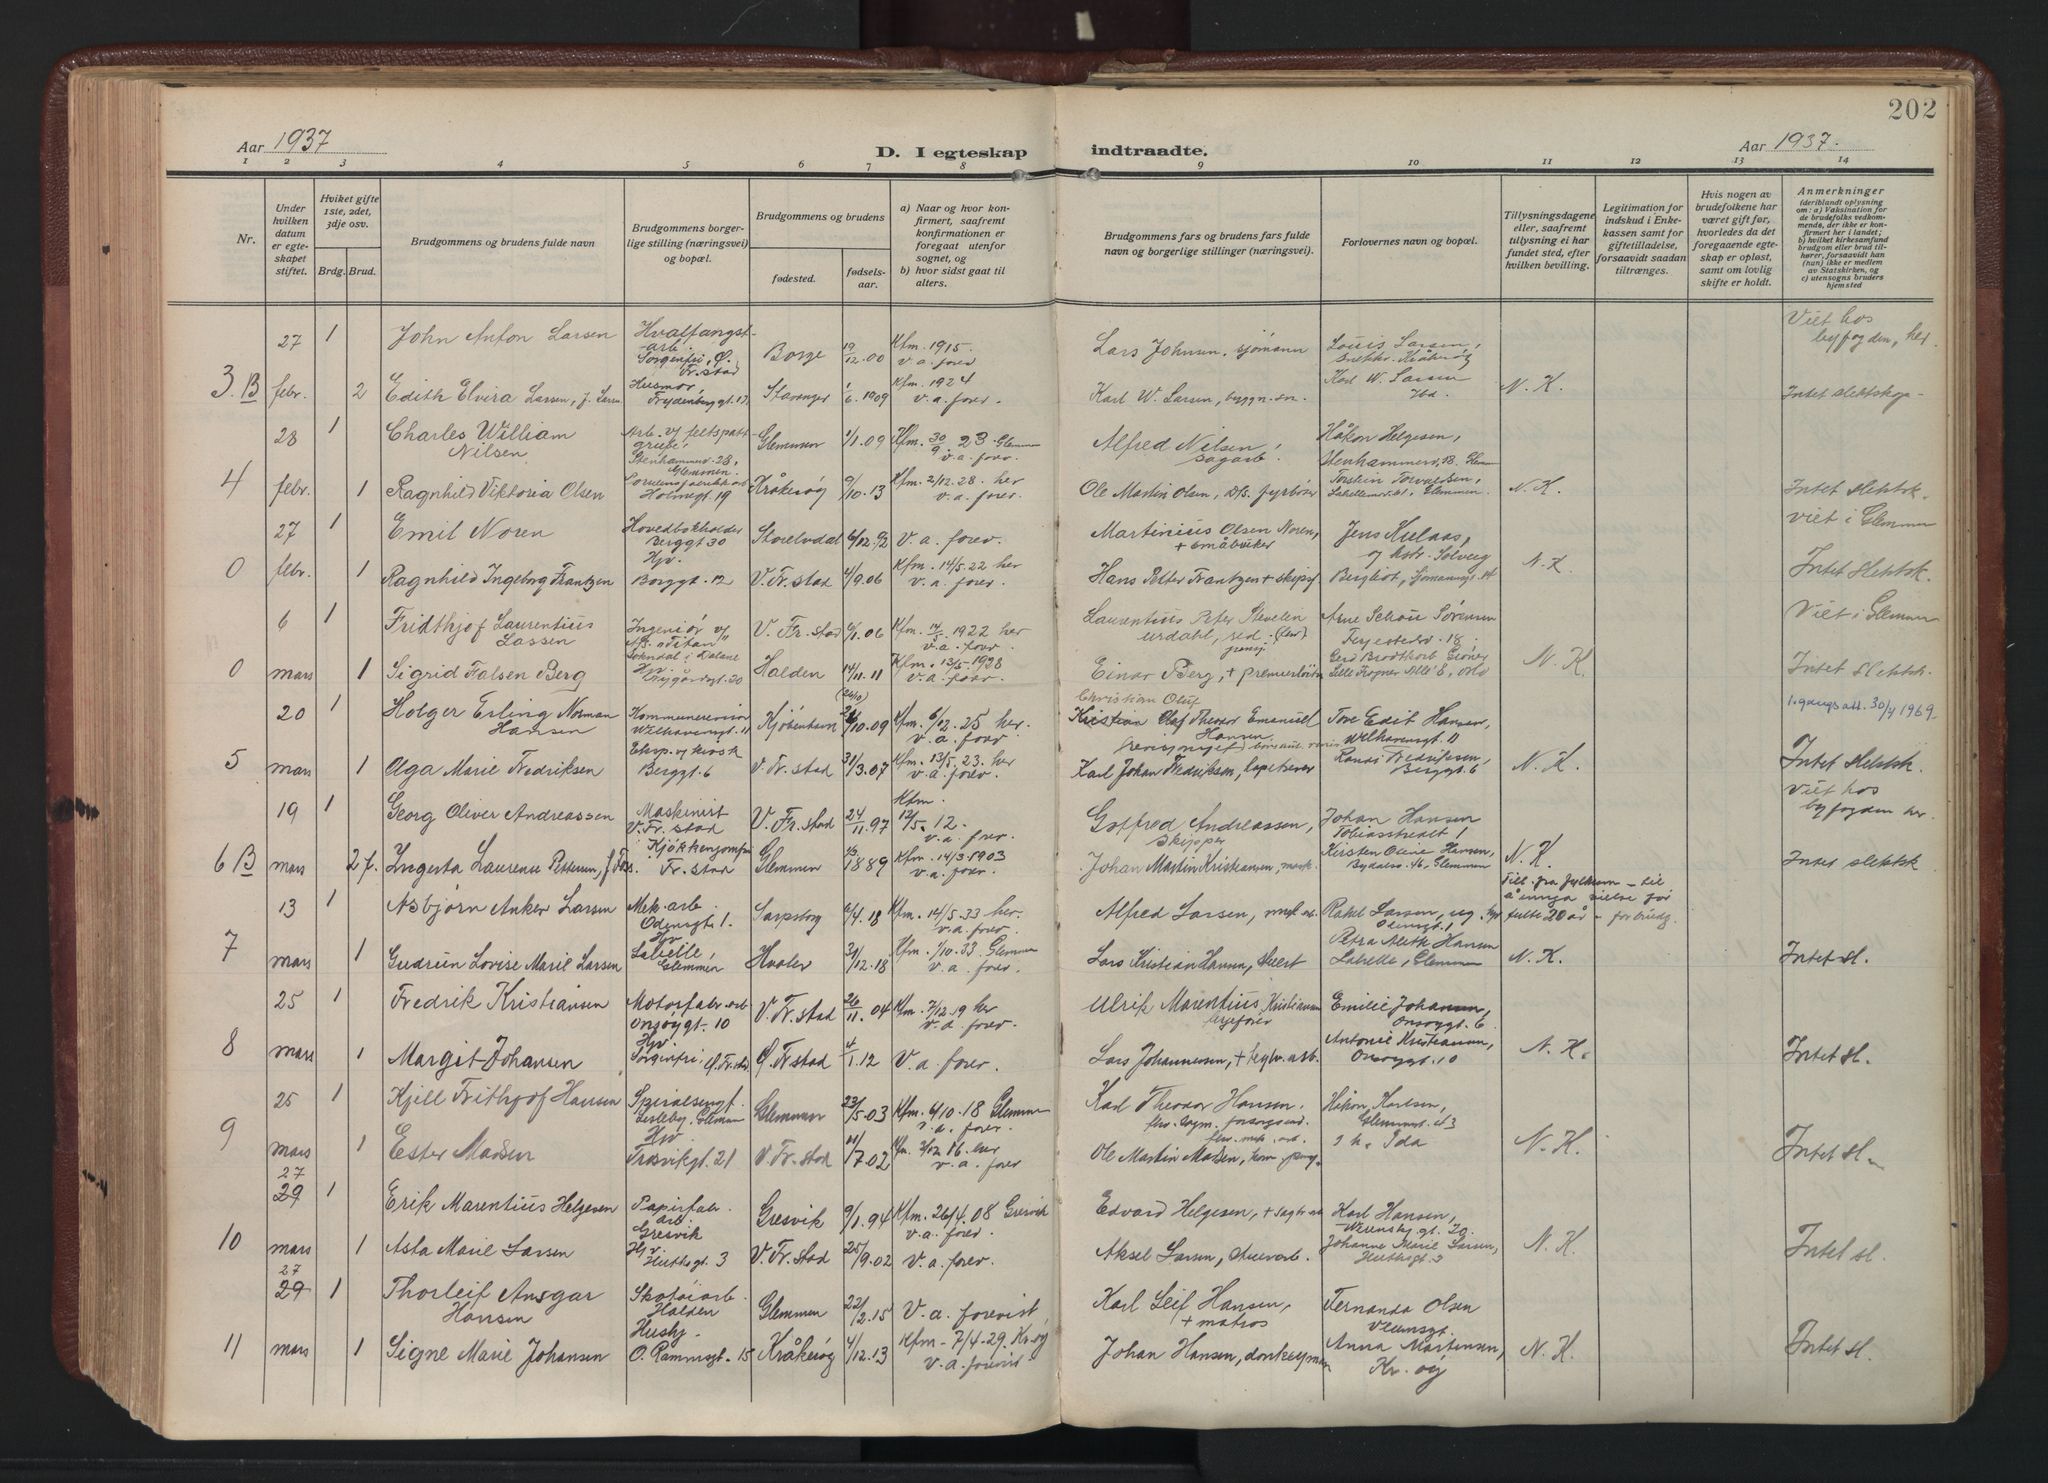 202
Aar 1937
D. I egteskap indtraadte.
Aar 1937.
1 2 3 4 5 6 7 8 9 10 11 12 13 14
Nr.
Under hvilken datum er egteskapet stiftet.
Hviket gifte 1ste, 2det, 3dje osv.
Brdg. Brud.
Brudgommens og brudens fulde navn
Brudgommens borgerlige stilling (næringsvei) og bopæl.
Brudgommens og brudens
fødested.
fødselsaar.
a) Naar og hvor konfirmert, saafremt konfirmationen er foregaat utenfor sognet, og
b) hvor sidst gaat til alters.
Brudgommens fars og brudens fars fulde navn og borgerlige stillinger (næringsvei).
Forlovernes navn og bopæl.
Tillysningsdagene eller, saafremt tillysning ei har fundet sted, efter hvilken bevilling.
Legitimation for indskud i Enkekassen samt for giftetilladelse, forsaavidt saadan tiltrænges.
Hvis nogen av brudefolkene har været gift før, hvorledes da det foregaaende egteskap er opløst, samt om lovlig skifte er holdt.
Anmerkninger
(deriblandt oplysning om: a) Vaksination for de brudefolks vedkommende, der ikke er konfirmert her i landet; b) hvilket kirkesamfund brudgom eller brud tilhører, forsaavidt han (hun) ikke er medlem av Statskirken, og c) utensogns bruders hjemsted
27 1 John Anton Larsen Hvalfangstarb. Sorgenfri, Ø. Fr.stad Borge 19/12.00 Kfm. 1915. v. a. forev. Lars Johnsen, sjömann Louis Larsen, Kråkeröy Viet hos byfogden, her.
3 B febr. 2 Edith Elvira Larsen, f. Larsen Husmor, Frydenberggt. 17 Stavanger 1/6.1909 Kfm. 1924 v. a. forev. Karl W. Larsen, Karl W. Larsen Ibd. N. K. Intet slektskap
28 1 Charles William Nilsen Arb. v/ feltspatt grube Stenhammerv. 28, Glemmen Glemmen 1/1.09 Kfm. 30/9 23. Glemmen v. a. forev. Alfred Nilsen, sagarb. Håkon Helgesen, Stenhammerv. 18. Glemmen
4 febr. 1 Ragnhild Viktoria Olsen Holmegt. 19 Kråkeröy 9/10.13 Kfm. 2/12. 28. her v. a. forev. Ole Martin Olsen, fyrböter Torstein Torvaldsen, Glemmen. N. K. Intet slektsk.
27 1 Emil Noren Hovedbokholder Berggt 30 Storelvdal 6/12.92 V. a. forev. Martinius Olsen Noren, + småbruker Jens Kulaas, Viet i Glemmen
0 febr. 1 Ragnhild Ingeborg Frantzen Hjv. Borggt. 12 V. Fr.stad 4/9.06 Kfm. 14/5.22 her v. a. forev. Hans Petter Frantzen + og Solveig Bergliot, Sjömannsgt. 14 N. K. Intet slektsk.
6 1 Fridthjof Laurentius Lassen Ingeniör v/ A/S Titan Sokndal i Dalane V. Fr.stad 6/1.06 Kfm. 14/5 1922 her v. a. forev. Laurentius Peter Stevelin Urdahl, red. Arne Schou Sörensen Ferjestedsv. 18. Viet i Glemmen
0 mars 1 Sigrid Falsen Berg Hjv. Nygårdsgt. 20 Halden 14/11.11 Kfm. 13/5. 1928 v. a. forev. Einar Berg, + premierlöitn. Gerd Brodtkorb Gröner Lille Frogner Allé 8, Oslo N. K. Intet slektsk.
20 1 Holger Erling Norman Hansen Kommunerevisor Wilhavensgt. 11 Kjöbenhavn (26/10) 10.09 Kfm. 6/12. 25 her. v. a. forev. Christian Oluf Kristian Olaf Theodor Emanuel Hansen Tove Edit Hansen, Welhavensgt. 11 1. gangs att. 30/4 1969.
5 mars 1 Olga Marie Fredriksen Eksp. v/ kiosk Berggt. 6 V. Fr.stad 31/3.07 Kfm. 13/5. 23. her v. a. forev. Karl Johan Fredriksen, tapetserer Randi Fredriksen, Berggt. 6 N. K. Intet slektsk.
19 1 Georg Oliver Andreassen Maskinist V. Fr.stad V. Fr.stad 24/11.97 Kfm. 12/5. 12. v. a. forev. Gotfred Andreassen, skipper Johan Hansen Tobiasstredet 1 Viet hos byfogden her.
6 B mars 2 f. Ingerta Laurense Pettersen, Kjökkenjomfru Fr.stad Glemmen 1889 Kfm. 14/3.1903 v. a. forev. Johan Martin Kristiansen, Kirsten Oline Hansen, Bydalsv. 46, Glemmen N. K. Intet slektsk
13 1 Asbjörn Anker Larsen Mek. arb. Odensgt. 1. Sarpsborg 9/4.18 Kfm. 14/5. 33 her. v. a. forev. Alfred Larsen, mek. arb. Rakel Larsen, Odensgt. 1 Till. fra fylkesm. til å inngå ekteskap för fylte 20 år - for brudg.
7 mars 1 Gudrun Lovise Marie Larsen Hjv. Labelle, Glemmen Hvaler 30/12.18 Kfm. 1/10. 33. Glemmen v. a. forev. Lars Kristian Hansen, Petra Aleth Hansen Labelle, Glemmen N. K. Intet sl.
25 1 Fredrik Kristiansen Motorfabr. arb Onsöygt. 10 V. Fr.stad 26/11.04 Kfm. 7/12.19 her v. a. forev. Ulrik Marentius Kristiansen Emilie Johansen, Onsöygt. 6
8 mars 1 Margit Johansen Hjv. Sorgenfri, Ö. Fr.stad Ö. Fr.stad 4/1.12 V. a. forev. Lars Johannesen, + teglv. arb. Antonie Kristiansen, Onsöygt. 10 N. K. Intet sl.
25 1 Kjell Frithjof Hansen Lisleby, Glemmen Glemmen 23/5.03 Kfm. 6/10.18 Glemmen v. a. forev. Karl Theodor Hansen. Håkon Karlsen, Glemmengt. 43
9 mars 1 Ester Madsen Hjv Trosvikgt. 21 V. Fr.stad 11/7.02 Kfm. 3/12 16. her v. a. forev Ole Martin Madsen, Ida N. K. Intet sl.
27 29 1 Erik Marentius Helgesen Papirfabr. arb Gresvik Gresvik 9/1.94 Kfm. 26/4.08 Gresvik v. a. forev. Edvard Helgesen, + sagbr. arb Karl Hansen,
10 mars 1 Asta Marie Larsen Hjv. Huttesgt. 3 V. Fr.stad 25/9.02 v. a. forev. Aksel Larsen, Johanne Marie Larsen, N. K. Intet sl.
27 29 1 Thorleif Ansgar Hansen Skotöiarb. Halden Glemmen 22/2.15 V. a. forevist, Karl Leif Hansen, + matros Fernanda Olsen
11 mars 1 Signe Marie Johansen Hushj. O. Rammsgt. 15 Kråkeröy 4/12.13 Kfm. 7/4.29. Kr.öy v. a. forevist Johan Hansen, donkeyman Anna Martensen, Kr. öy N. K. Intet sl.